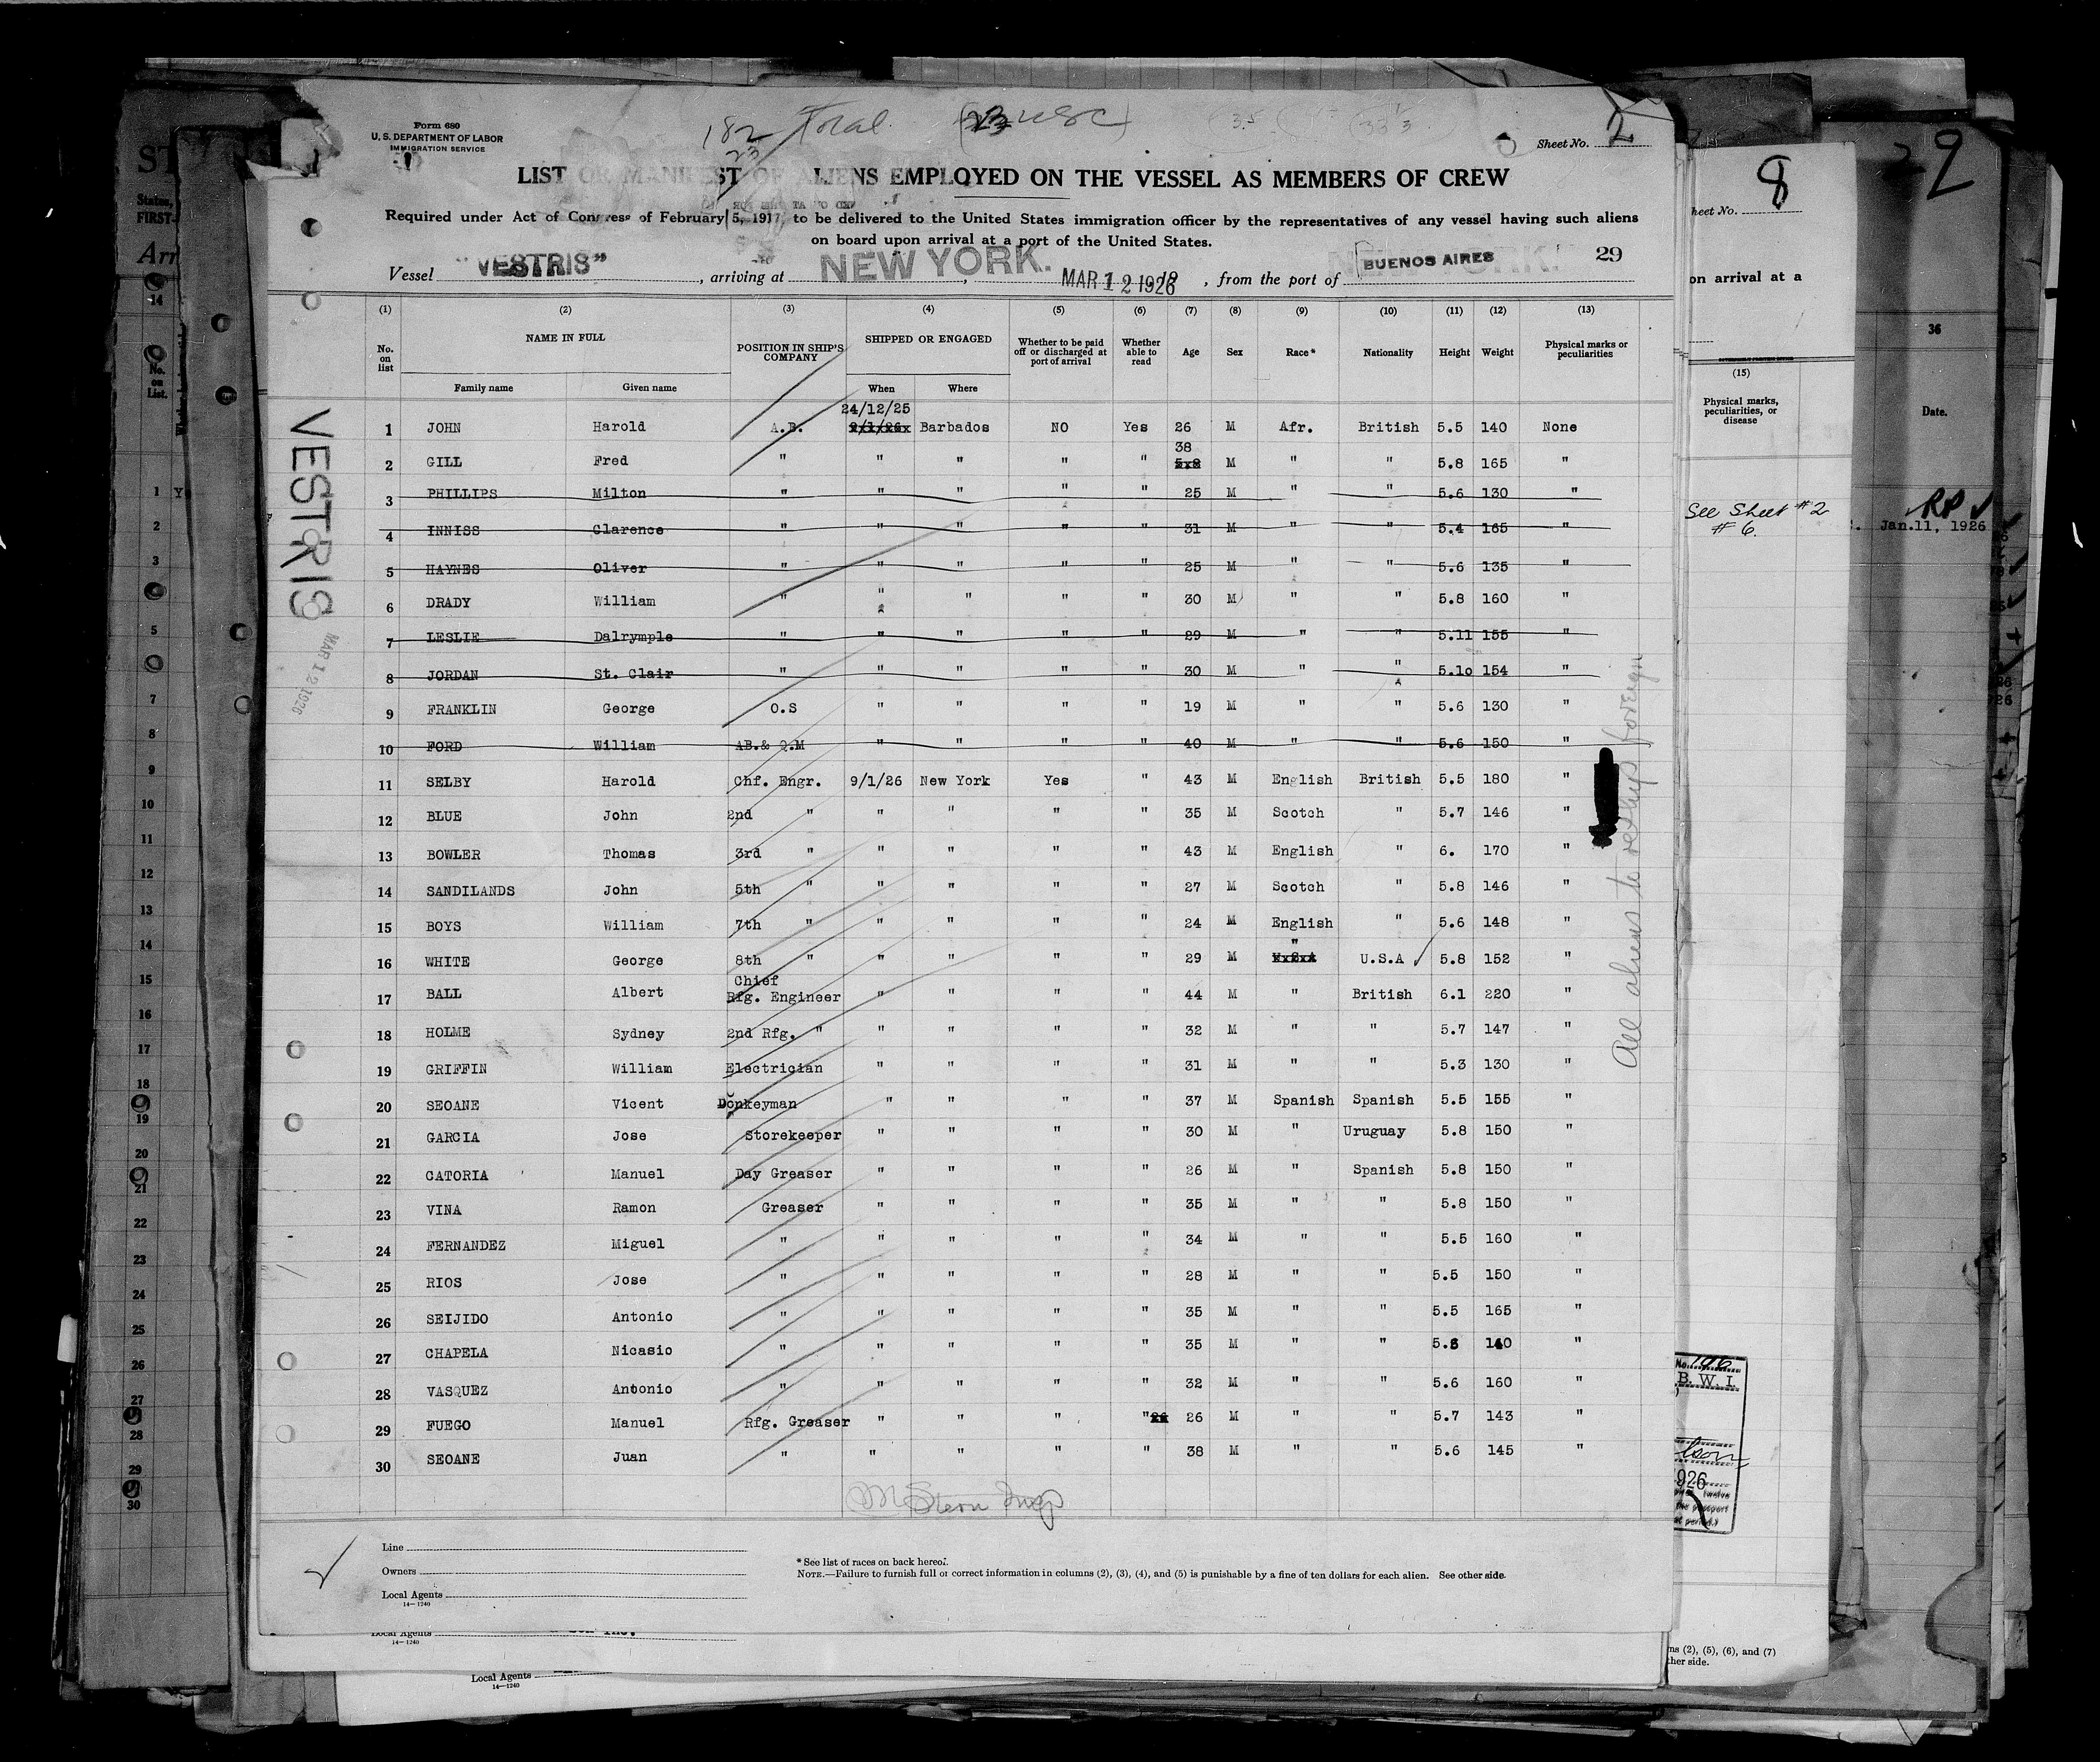 Form 680
U. S. DEPARTMENT OF LABOR
IMMIGRATION SERVICE
182 Total
23
Sheet No. 2
LIST OR MANIFEST OF ALIENS EMPLOYED ON THE VESSEL AS MEMBERS OF CREW
Required under Act of Congress of February 5, 1917, to be delivered to the United States immigration officer by the representatives of any vessel having such aliens
on board upon arrival at a port of the United States.
Vessel "VESTRIS", arriving at NEW YORK., MAR 12 1926, from the port of BUENOS AIRES 29
(1) (2) (3) (4) (5) (6) (7) (8) (9) (10) (11) (12) (13)
No. on list NAME IN FULL POSITION IN SHIP'S COMPANY SHIPPED OR ENGAGED Whether to be paid off or discharged at port of arrival Whether able to read Age Sex Race* Nationality Height Weight Physical marks or peculiarities
Family name Given name When Where
24/12/25
1 JOHN Harold A.B. 9/1/26 Barbados NO Yes 26 M Afr. British 5.5 140 None
38
2 GILL Fred " " " " " M " " 5.8 165 "
3 PHILLIPS Milton " " " " " 25 M " " 5.6 130 "
4 INNISS Clarence " " " " " 31 M " " 5.4 165 "
5 HAYNES Oliver " " " " " 25 M " " 5.6 135 "
6 DRADY William " " " " " 30 M " " 5.8 160 "
7 LESLIE Dalrymple " " " " " 29 M " " 5.11 155 "
8 JORDAN St. Clair " " " " " 30 M " " 5.10 154 "
9 FRANKLIN George O.S " " " " 19 M " " 5.6 130 "
10 FORD William AB.& Q.M " " " " 40 M " " 5.6 150 "
11 SELBY Harold Chf. Engr. 9/1/26 New York Yes " 43 M English British 5.5 180 "
12 BLUE John 2nd " " " " " 35 M Scotch " 5.7 146 "
13 BOWLER Thomas 3rd " " " " " 43 M English " 6. 170 "
14 SANDILANDS John 5th " " " " " 27 M Scotch " 5.8 146 "
15 BOYS William 7th " " " " " 24 M English " 5.6 148 "
16 WHITE George 8th " " " " " 29 M " U.S.A 5.8 152 "
17 BALL Albert Chief Rfg. Engineer " " " " 44 M " British 6.1 220 "
18 HOLME Sydney 2nd Rfg. " " " " " 32 M " " 5.7 147 "
19 GRIFFIN William Electrician " " " " 31 M " " 5.3 130 "
20 SEOANE Vicent Donkeyman " " " " 37 M Spanish Spanish 5.5 155 "
21 GARCIA Jose Storekeeper " " " " 30 M " Uruguay 5.8 150 "
22 CATORIA Manuel Day Greaser " " " " 26 M " Spanish 5.8 150 "
23 VINA Ramon Greaser " " " " 35 M " " 5.8 150 "
24 FERNANDEZ Miguel " " " " " 34 M " " 5.5 160 "
25 RIOS Jose " " " " " 28 M " " 5.5 150 "
26 SEIJIDO Antonio " " " " " 35 M " " 5.5 165 "
27 CHAPELA Nicasio " " " " " 35 M " " 5.6 140 "
28 VASQUEZ Antonio " " " " " 32 M " " 5.6 160 "
29 FUEGO Manuel Rfg. Greaser " " " " 26 M " " 5.7 143 "
30 SEOANE Juan " " " " " 38 M " " 5.6 145 "
M Stern Insp
Line
Owners
Local Agents
14—1240
* See list of races on back hereof.
NOTE.—Failure to furnish full or correct information in columns (2), (3), (4), and (5) is punishable by a fine of ten dollars for each alien. See other side.
VESTRIS
MAR 12 1926
All aliens to reship foreign
Local Agents
14—1240
Local Agents
14—1240
8
heet No.
on arrival at a
(15)
Physical marks, peculiarities, or disease
See Sheet #2
#6.
No. 106
B. W. I.
926
ns (2), (5), (6), and (7)
ther side.
29
36
Date.
RP
Jan.11, 1926
ST
States,
FIRST-
Arr
14
No. on List.
1
2
3
5
7
8
9
10
11
12
13
14
15
16
17
18
19
20
21
22
23
24
25
26
27
28
29
30